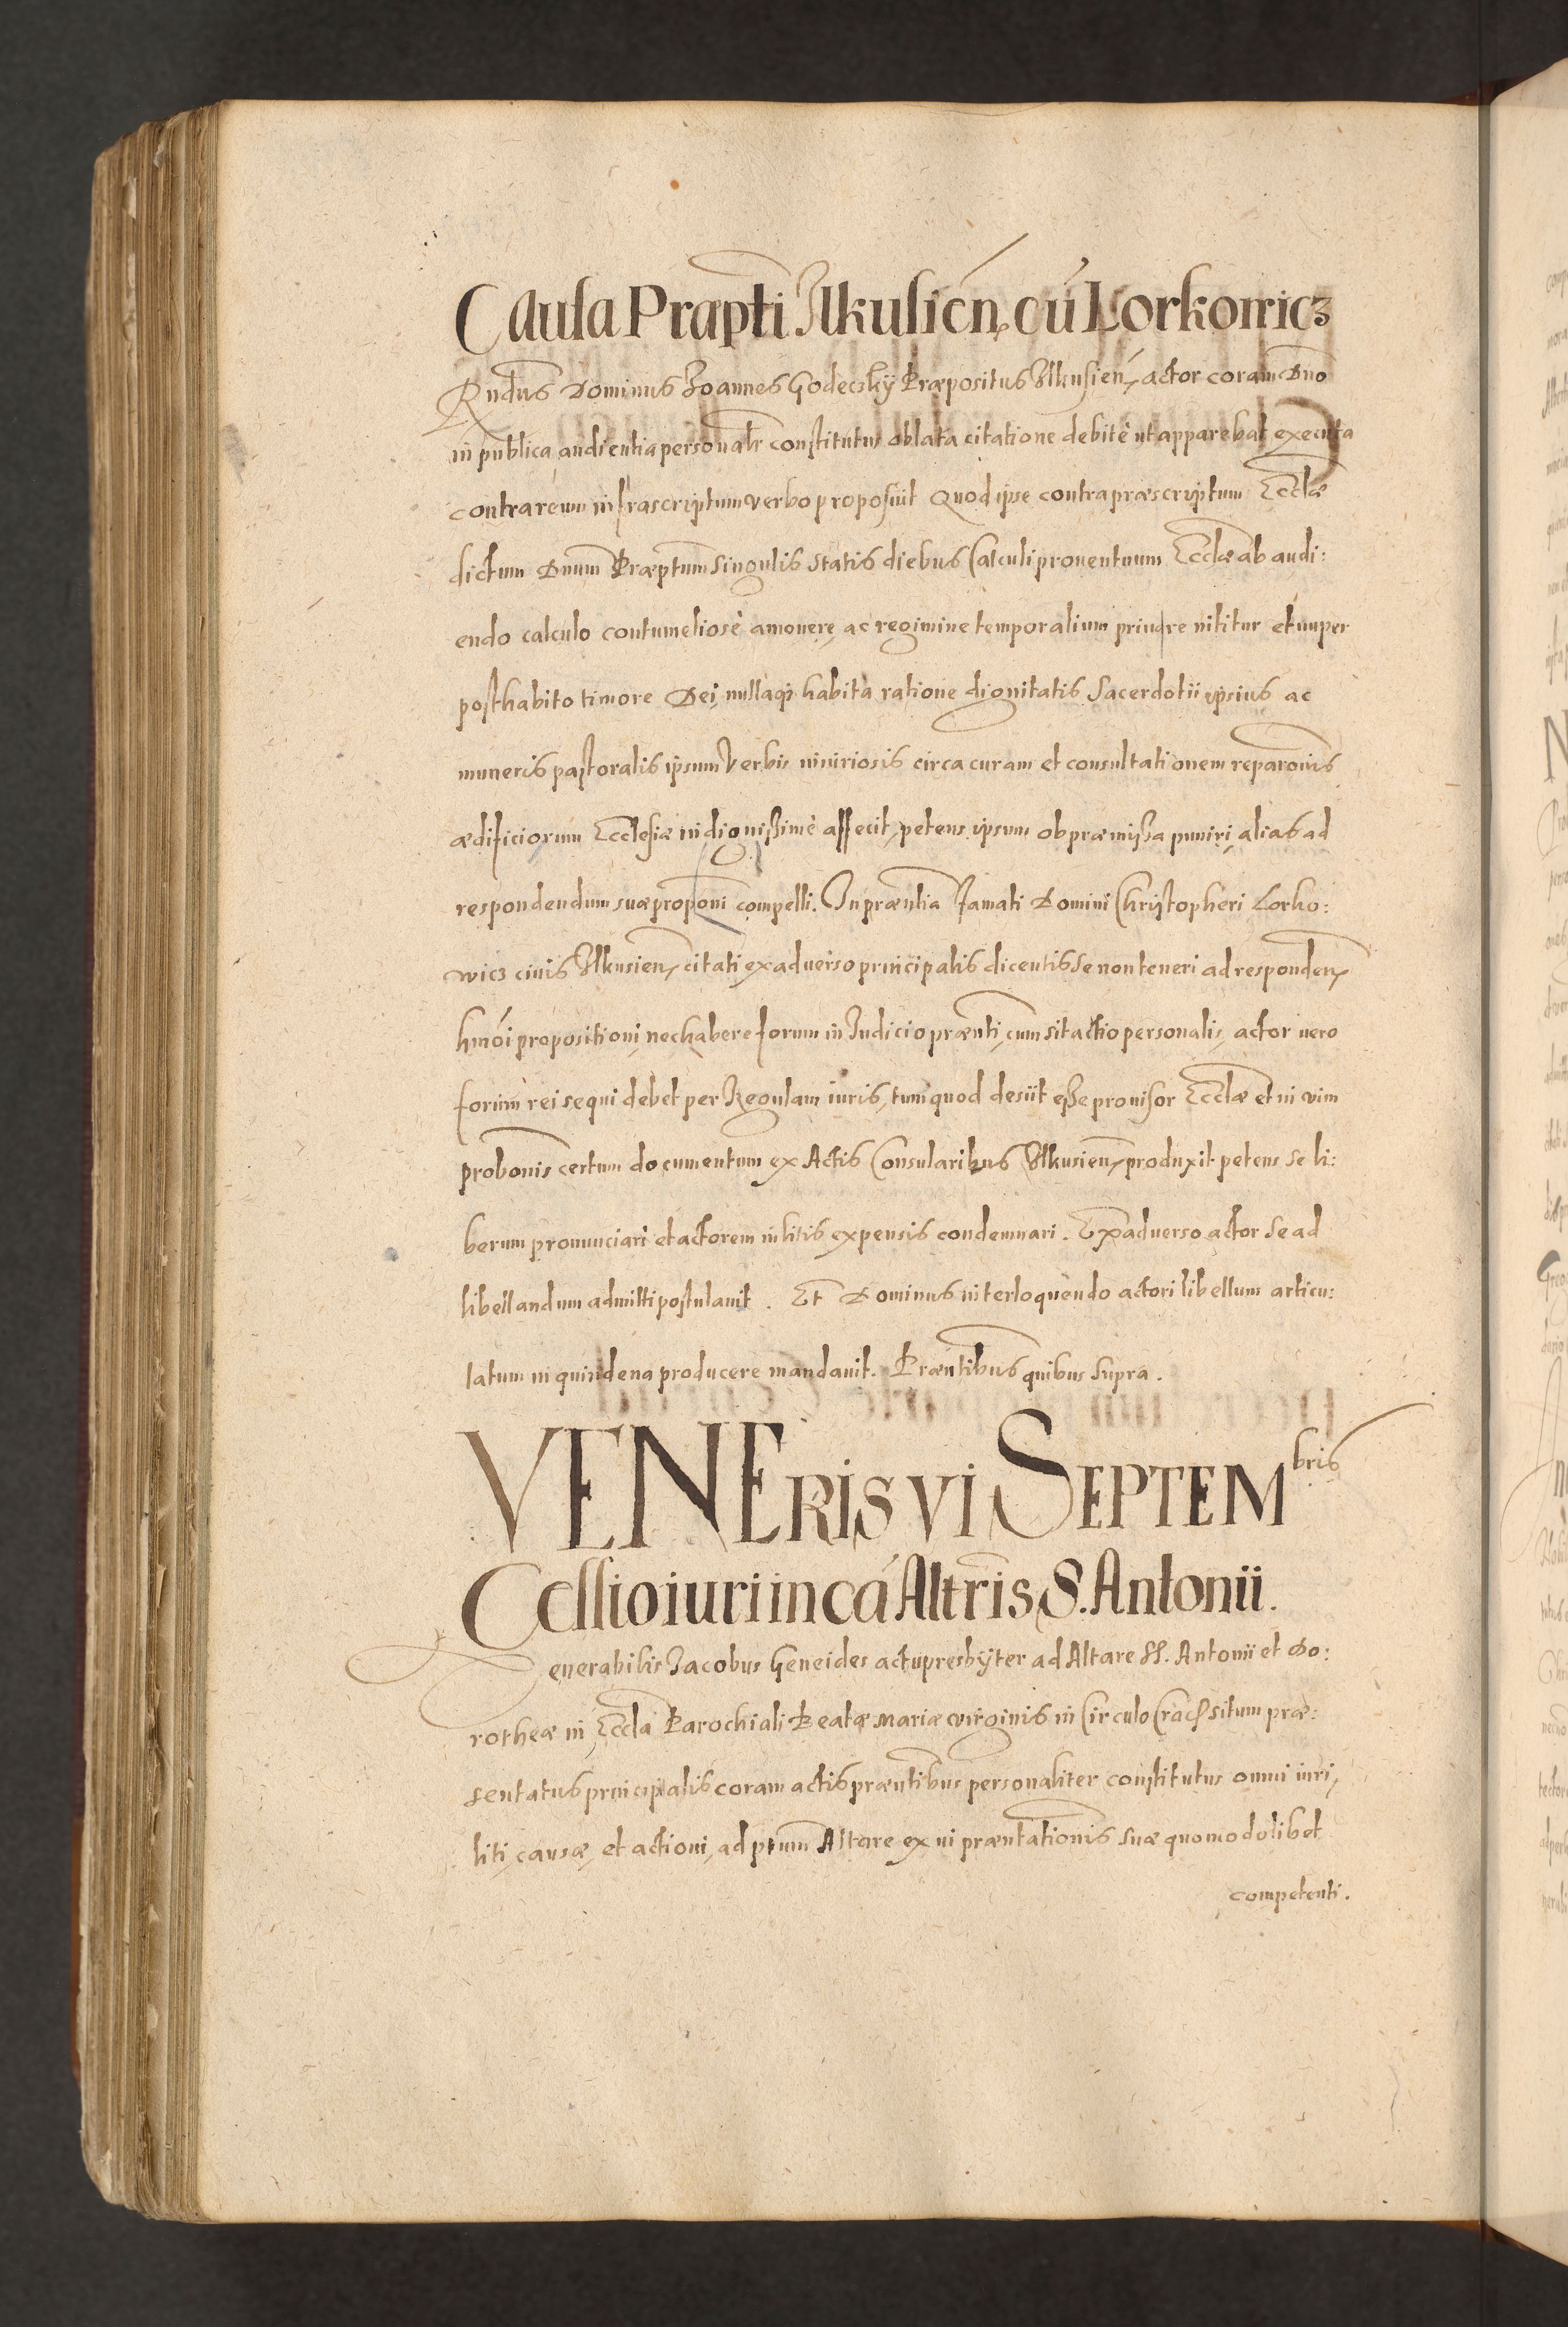 Causa Præpti Ilkusien. cu Lorkowicz
Rndus Dominus Joannes Godeczky Præpositus Ilkusien. actor coram Dno
in publica audientia personalr constitutus oblata citatione debitè ut apparebat executa
contra reum infrascriptum verbo proposuit Quod ipse contra præscriptum Ecclæ
dictum Dnum Præptum singulis statis diebus Calculi prouentuum Ecclæ ab audi:
endo calculo contumeliosè amouere, ac regimine temporalium priuare nititur et nuper
posthabito timore Dei, nullaq; habita ratione dignitatis Sacerdotii ipsius ac
muneris pastoralis ipsum Verbis iniuriosis circa curam et consultationem reparonis
ædificiorum Ecclesiæ indignißimè affecit, petens ipsum ob præmißa puniri, alias ad
respondendum suæ proponi compelli. In præntia famati Domini Christopheri Lorko:
wicz ciuis Ilkusien. citati ex aduerso principalis dicentis se non teneri ad responden.
hmoi propositioni, nec habere forum in Judicio prænti, cum sit actio personalis, actor uero
forum rei sequi debet per Regulam iuris, tum quod desiit eße prouisor Ecclæ et in vim
probonis certum documentum ex Actis Consularibus Ilkusien. produxit petens se li:
berum pronunciari et actorem in litis expensis condemnari. Ex aduerso actor se ad
libellandum admitti postulauit. Et Dominus interloquendo actori libellum articu:
latum in quindena producere mandauit. Præntibus quibus supra.
VENERIS VI SEPTEMbris
Cessio iuri in ca Altris S. Antonii.
Venerabilis Jacobus Geneides actu presbyter ad Altare SS. Antonii et Do:
rotheæ in Eccla Parochiali Beatæ Mariæ virginis in Circulo Crac. situm præ:
sentatus principalis coram actis præntibus personaliter constitutus omni iuri,
liti, causæ, et actioni, ad ptum Altare ex ui præntationis suæ quomodolibet
competenti.